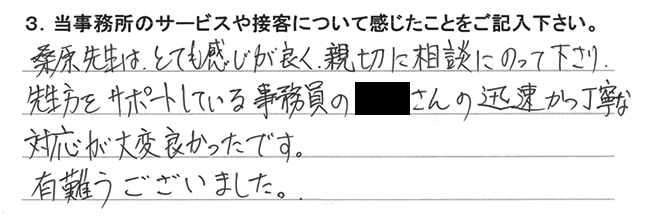 3. 当事務所のサービスや接客について感じたことをご記入下さい。
桑原先生は、とても感じが良く、親切に相談にのって下さり、
先生方をサポートしている事務員の さんの迅速かつ丁寧な
対応が大変良かったです。
有難うございました。